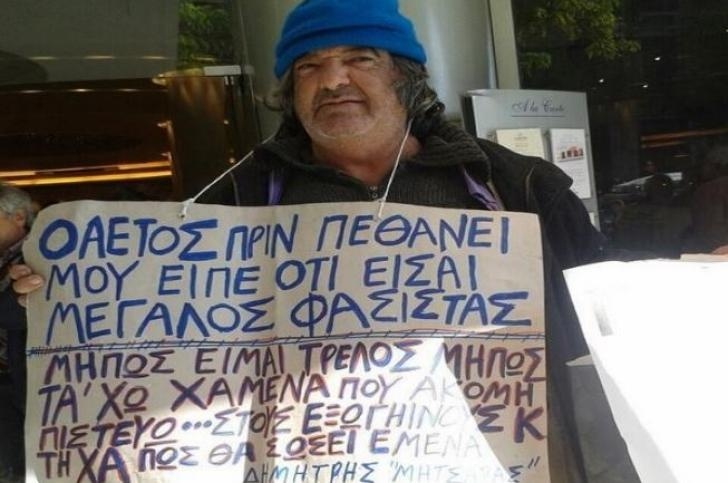 A la Carte
Ο ΑΕΤΟΣ ΠΡΙΝ ΠΕΘΑΝΕΙ
ΜΟΥ ΕΙΠΕ ΟΤΙ ΕΙΣΑΙ
ΜΕΓΑΛΟΣ ΦΑΣΙΣΤΑΣ
ΜΗΠΩΣ ΕΙΜΑΙ ΤΡΕΛΟΣ ΜΗΠΩΣ
ΤΑ' ΧΩ ΧΑΜΕΝΑ ΠΟΥ ΑΚΟΜΗ
ΠΙΣΤΕΥΩ...ΣΤΟΥΣ ΕΞΩΓΗΙΝΟΥΣ Κ
ΤΗ ΧΑ ΠΩΣ ΘΑ ΣΩΣΕΙ ΕΜΕΝΑ
ΔΗΜΗΤΡΗΣ "ΜΗΤΣΑΡΑΣ"